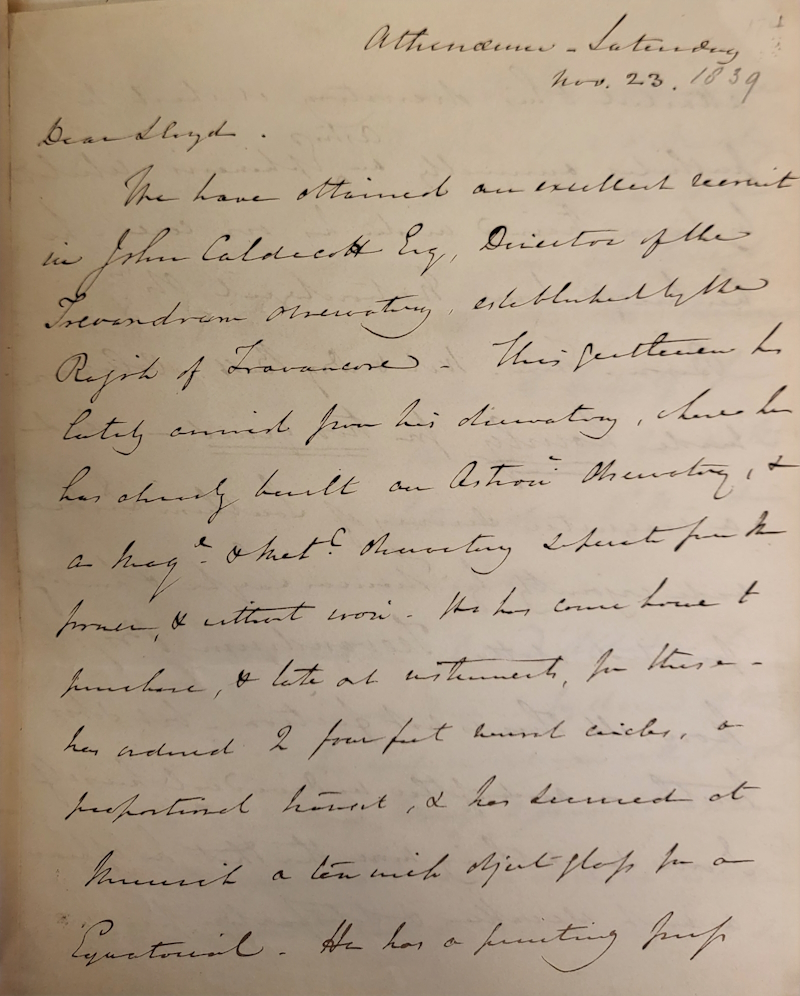 Athenæum - Saturday
Nov. 23. 1839
Dear Lloyd.
We have attained an excellent recruit
in John Caldecott Esq, Director of the
Trevandrum Observatory, established by the
Rajah of Travancore - This gentleman has
lately arrived from his observatory, where he
has already built an Astronl Observatory, &
a Mage. & Metc. Observatory separate from the
former, & without iron. He has come home to
purchase, & take out instruments, for these -
has ordered 2 four feet mural circles, a
proportional transit, & has secured at
Munich a ten inch object glass for an
Equatorial - He has a printing press